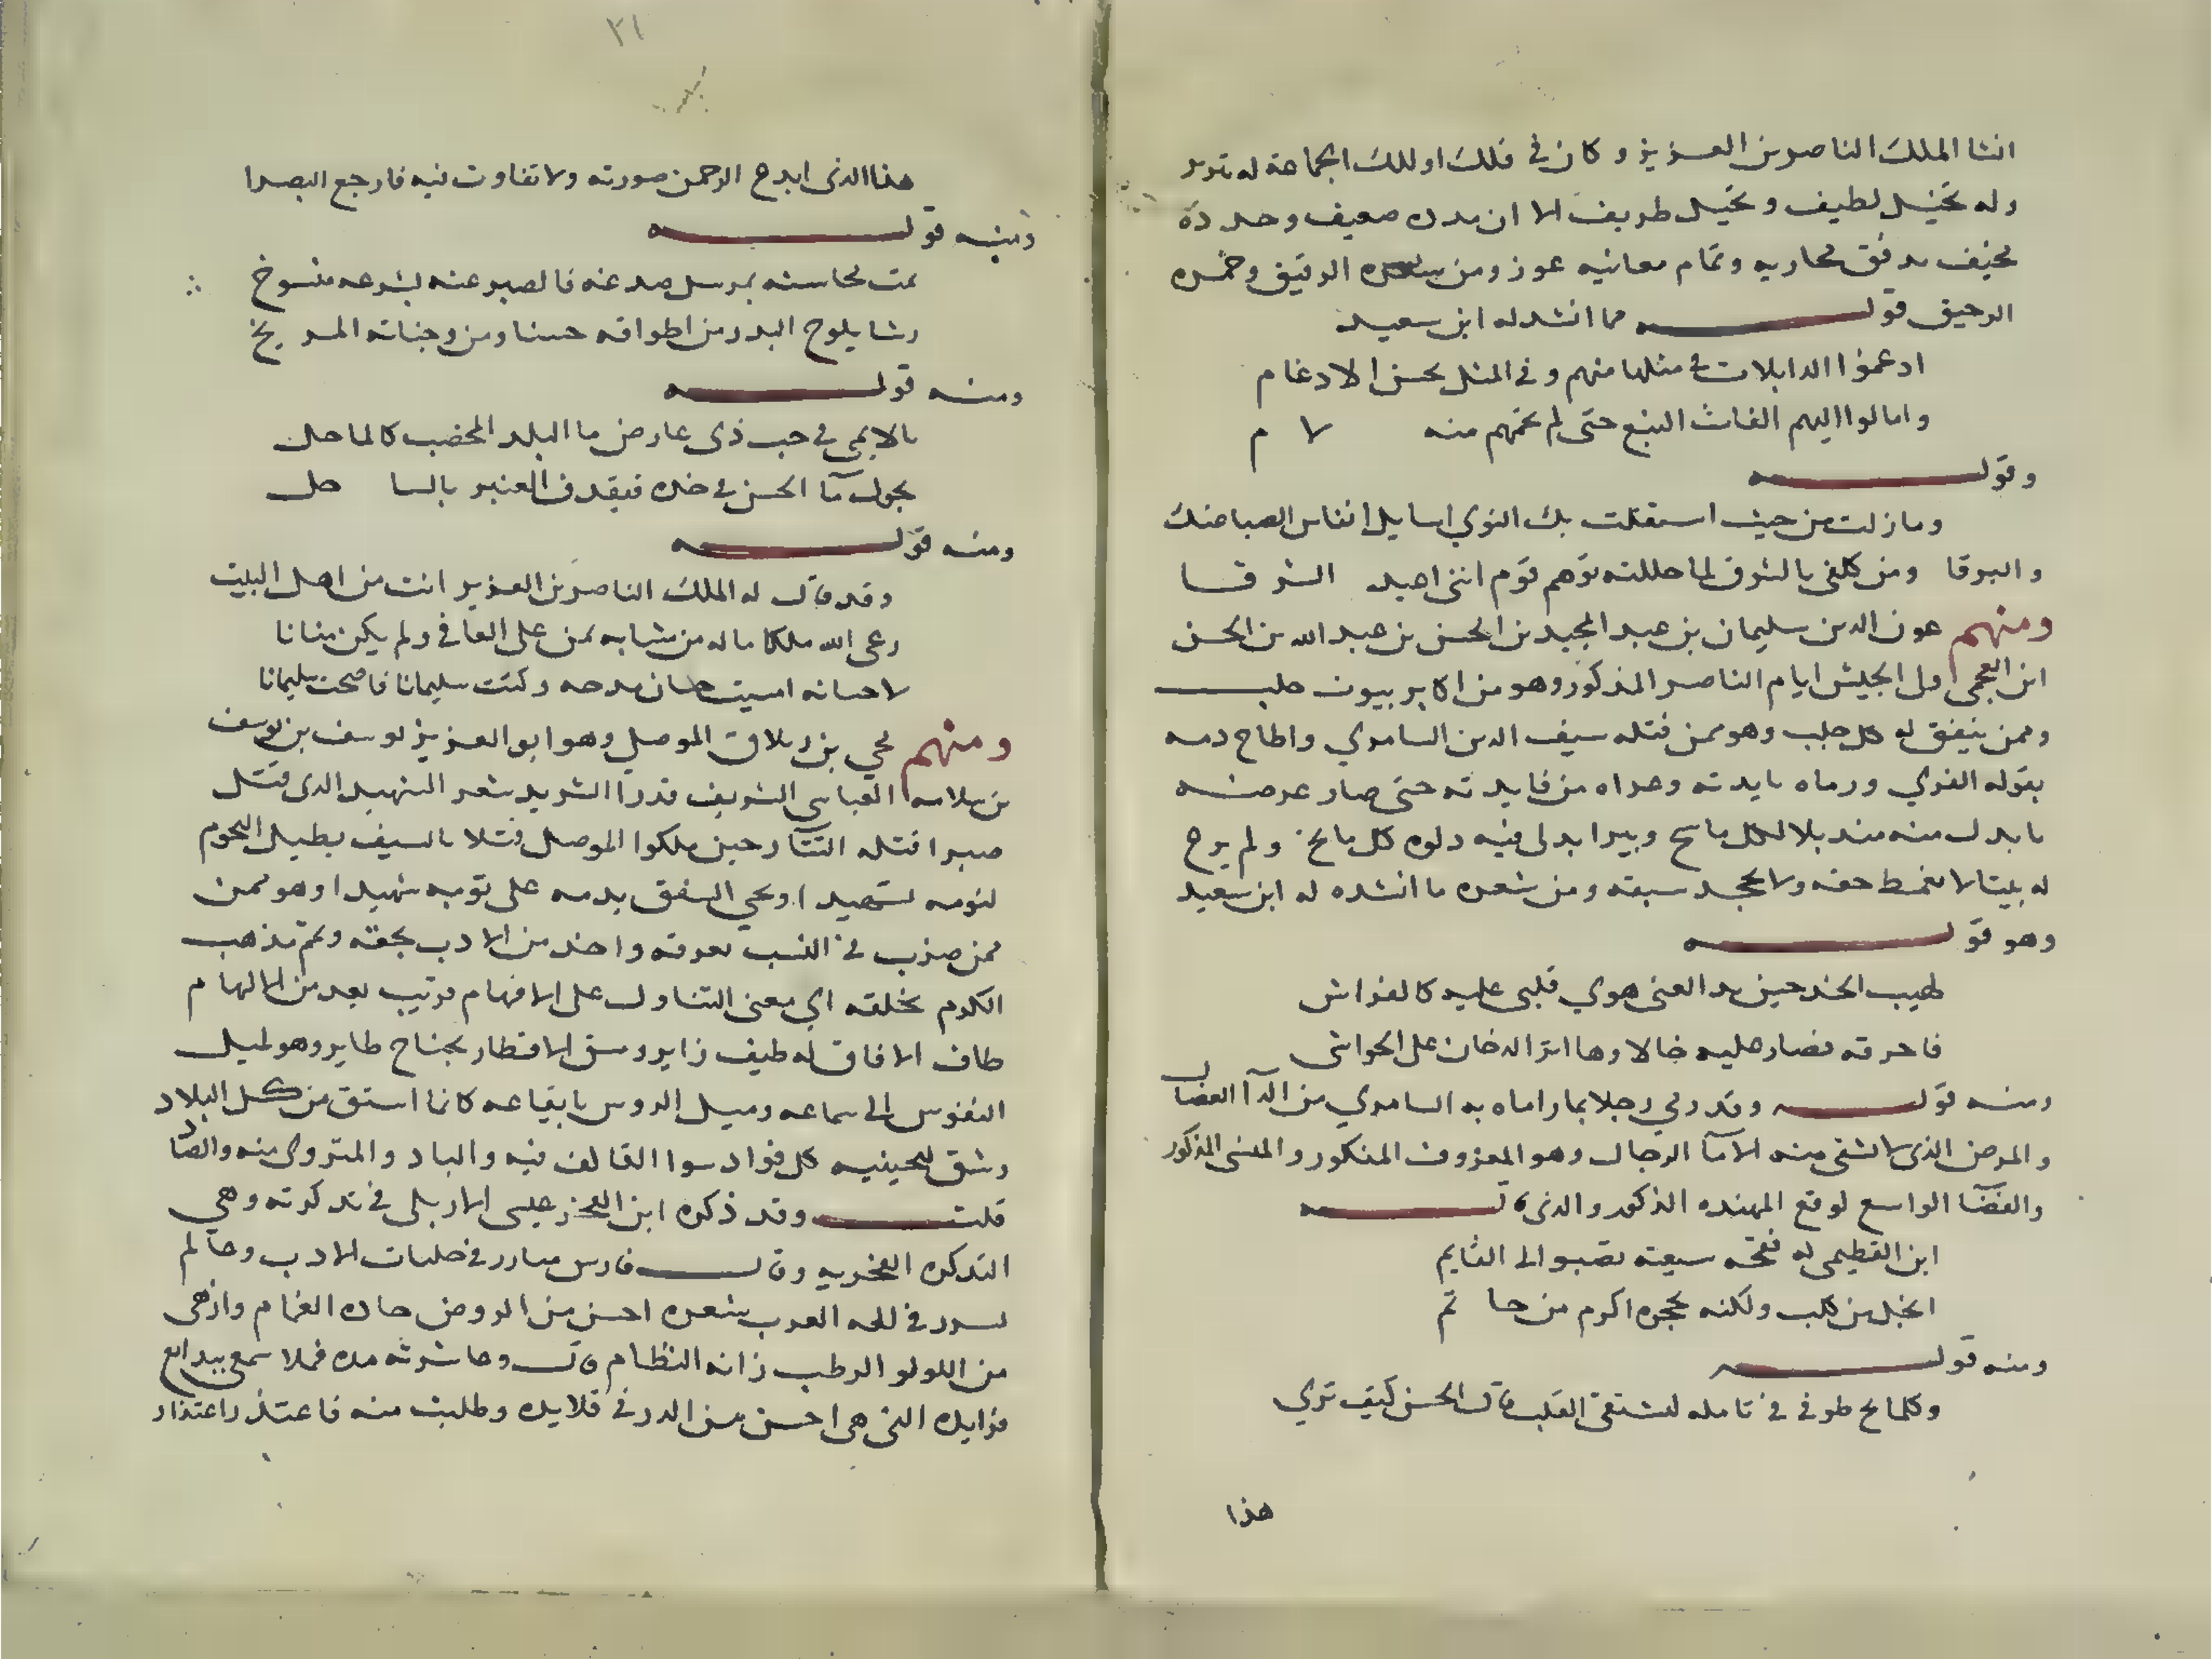 انشا الملك الناصر بن العزيز وكان في فلك اولئك الجماعة له
وله تخيل لطيف وتحيل طريف الا ان ضعيف
وتمام معانيه عون ومن شعره الرقيق وخمره
الرحيق قولـــــه مما انشد له ابن سعيد
ادغموا الدابلات في مثلها منهم وفي المثل يحسن الادغام
وامالوا اليهم الفات النبع حتى لم تحمهم منه لام
وقولـــــه
وما زلت من حيث استقلت بك النوي اسايل انفاس الصبا عنك
والبرقا ومن كلفي بالشرق لما حللته توهم قوم انني اعبد الشرقا
ومنهم عون الدين سليمان بن عبد المجيد بن الحسن بن عبد الله بن الحسن
ابن العجمي الجيش ايام الناصر المذكور وهو من اكابر بيوت حلب
وممن ينفق له كل جلب وهو ممن قتله سيف الدين السامري واطاح دمه
بقوله الفري ورماه بايدته وعراه من فايدته حتى صار عرضه
منه منديلا لكل ماسح وبيرا يدلى فيه دلوه كل مايح ولم يرع
له بيتا لا يغمط حقه ولا يجحد سبقه ومن شعره ما انشده له ابن سعيد
وهو قولـــــه
لهيب الخد حين بدا لعيني هوي قلبي عليه كالفراش
فاحرقه فصار عليه خالا وها اثر الدخان على الحواشي
ومنه قولـــــه وقد رمي رجلا بما راماه به السامري من الدآ العضال
والمرض الذي لا يشفى منه الا مآ الرجال وهو المعروف المنكور والمعنى المذكور
والفضآ الواسع لوقع المهنده الذكور والذي قالـــــه
ابن القطيمي له فقحة سبعة تصبو الى القايم
ابخل من كلب ولكنه بجحره اكرم من حاتم
ومنه قولـــــه
وكلما لج طرفي في تامله ليشتفي القلب قال الحسن كيف تري
هذا
٢١
هذا الذي ابدع الرحمن صورته ولا تفاوت فيه فارجع البصرا
ومنه قولـــــه
نمت محاسنه بمرسل صدغه فالصبر عنه بشرعه منسوخ
رشا يلوح البدر من اطواقه حسنا ومن وجناته المريخ
ومنه قولـــــه
يالايمي في حب ذي عارض ما البلد المخصب كالماحل
يجول مآ الحسن في خده فيقذف العنبر بالساحل
ومنه قولـــــه
وقد قال له الملك الناصر بن العزيز انت من اهل البيت
رعى الله ملكا ما له من مشابه يمن على العافي ولم يكن منانا
لاحسانه امسيت حسان مدحه وكنت سليمانا فاصبحت سليمانا
ومنهم محي بن زبلاق الموصلي وهو ابو العزيز يوسف بن يوسف
بن سلامه العباسي الشريف قدرا الشريد شعر الشهيد الذي قتل
صبرا قتله التتار حين ملكوا الموصل قتلا بالسيف يطيل النجوم
لنومه تسهيدا ويحي الشفق بدمه على ثوبه شهيدا وهو ممن
ممن ضرب في النسب بعرقه واخذ من الادب بحقه ولم يذهب
الكلام بخلقه اي معنى التناول على الافهام قريب بعد من الالهام
طاف الافاق له طيف زاير وشق الاقطار بجناح طاير وهو لميل
النفوس الى سماعه وميل الروس بايقاعه كانما استق من كل البلاد
وشق لمحبيه كل فواد سوا القالف فيه والباد والمتروي منه والصاد
قلتـــــ وقد ذكره ابن الفخر عيسى الاربلي في تذكرته وهي
التذكره الفخريه وقالـــــ فارس مبارز في حلبات الادب وعالم
مبرز في لغه العرب شعره احسن من الروض جاده الغمام وازهى
من اللولو الرطب زانه النظام قالـــــ وعاشرته مده فملا سمعي ببدايع
فوايده التي هي احسن من الدر في قلايده وطلبت منه فاعتذر اعتذار